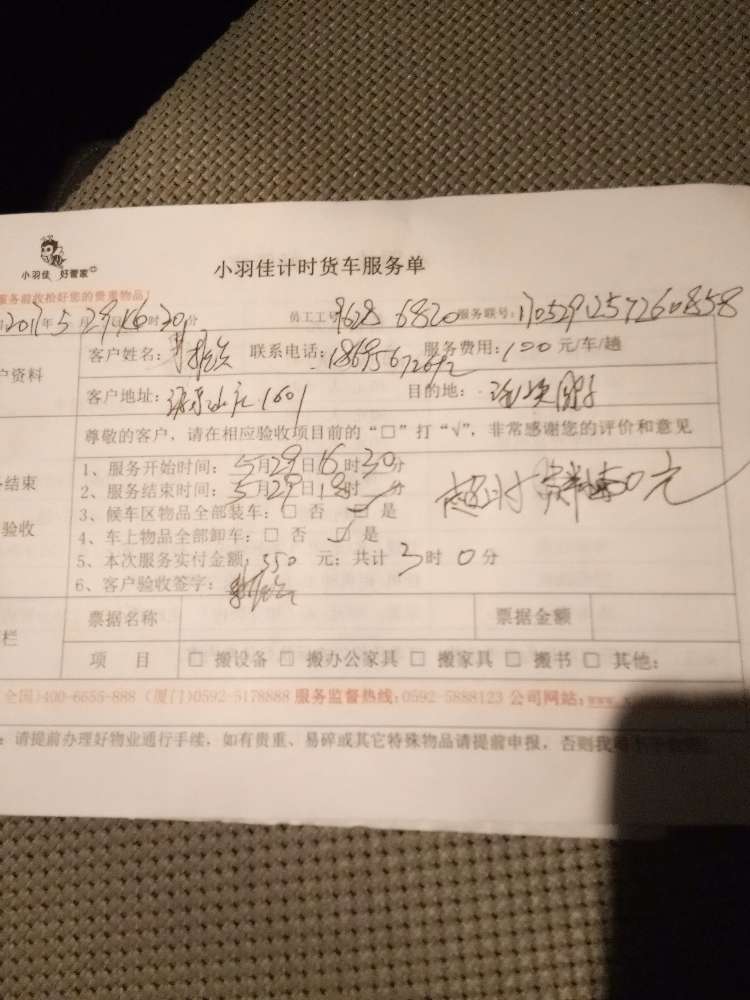 小羽佳 好管家
小羽佳计时货车服务单
服务前收拾好您的贵重物品!
2017年5月29日16时30分 员工工号 9628 6820 服务联号:1705291257260858
户资料 客户姓名: 联系电话: 服务费用:100元/车/趟
客户地址: 1601 目的地:
尊敬的客户，请在相应验收项目前的“□”打“√”，非常感谢您的评价和意见
结束
验收
1、服务开始时间:5月29日16时30分
2、服务结束时间:5月29日19时 分
3、候车区物品全部装车:□ 否 ☑ 是
超时 50元
4、车上物品全部卸车:□ 否 ☑ 是
5、本次服务实付金额:350元;共计3时0分
6、客户验收签字:
栏 票据名称 票据金额
项 目 □ 搬设备 □ 搬办公家具 □ 搬家具 □ 搬书 □ 其他:
全国)400-6655-888 (厦门)0592-5178888 服务监督热线:0592-5888123 公司网站:www.
:请提前办理好物业通行手续，如有贵重、易碎或其它特殊物品请提前申报，否则我